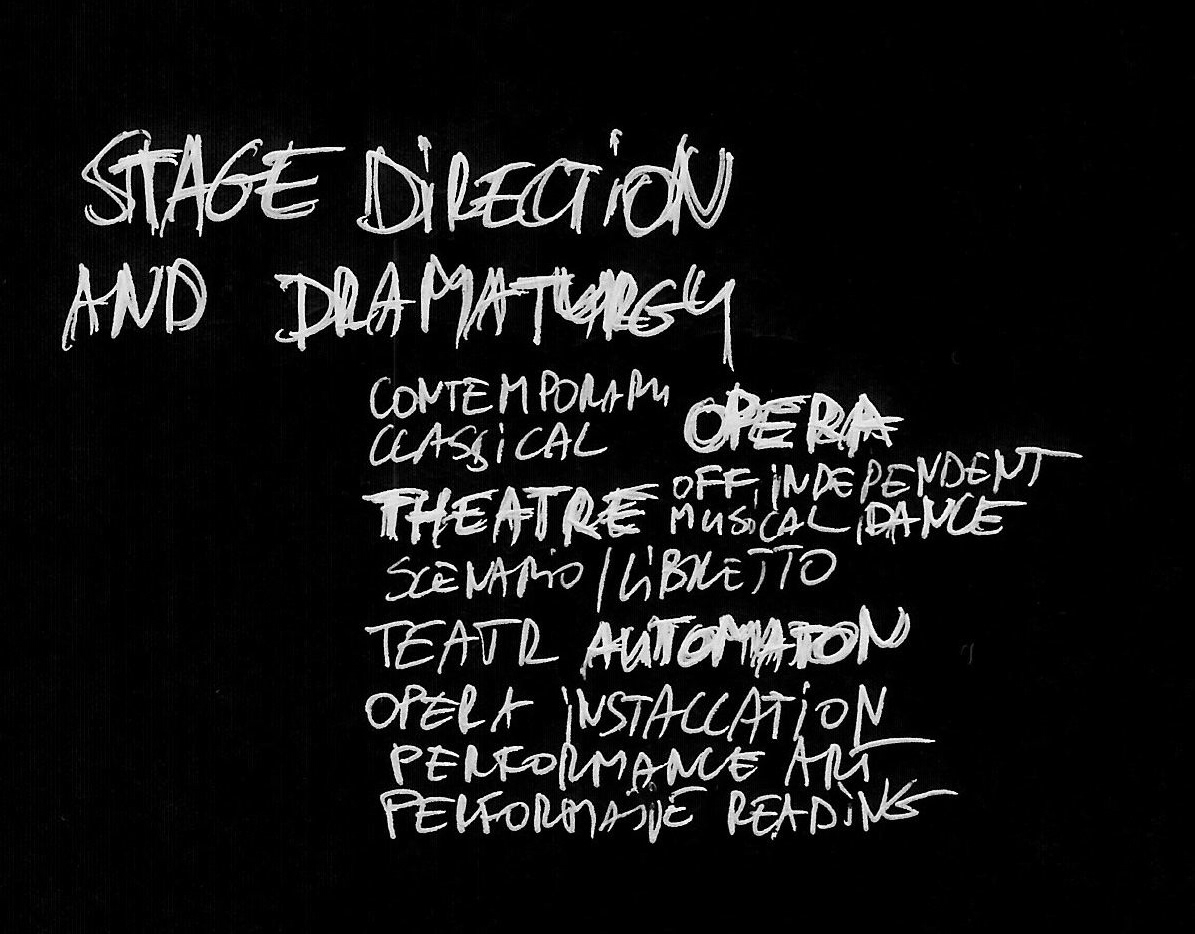 STAGE DiRECTiON
AND DRAMATURGY
CONTEMPORARY OPERA
CLASSiCAL
THEATRE OFF, iNDEPENDENT
MUSiCAL, DANCE
SCENARiO / LiBRETTO
TEATR AUTOMATON
OPERA iNSTALLATiON
PERFORMANCE ART
READiNG